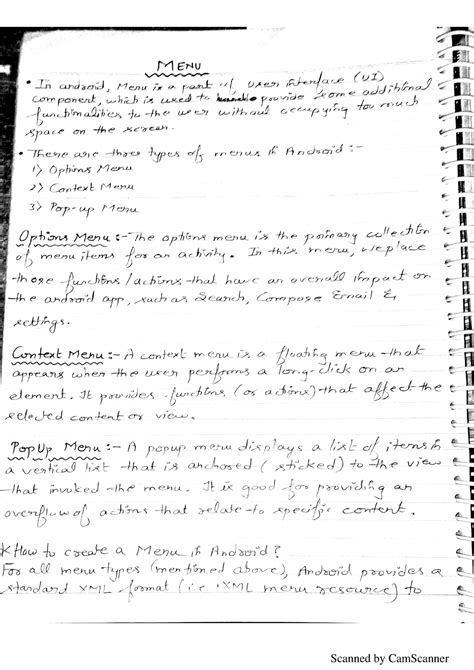 MENU
• In android, Menu is a part of user interface (UI)
component, which is used to provide some additional
functionalities to the user without occupying too much
space on the screen.
• There are three types of menus in Android :-
1) Options Menu
2) Context Menu
3) Pop-up Menu
Options Menu :- The options menu is the primary collection
of menu items for an activity. In this menu, we place
those functions/actions that have an overall impact on
the android app, such as Search, Compose Email &
settings.
Context Menu :- A context menu is a floating menu that
appears when the user performs a long-click on an
element. It provides functions (or actions) that affect the
selected content or view.
PopUp Menu :- A popup menu displays a list of items in
a vertical list that is anchored (sticked) to the view
that invoked the menu. It is good for providing an
overflow of actions that relate to specific content.
* How to create a Menu in Android?
For all menu types (mentioned above), Android provides a
standard XML format (i.e. XML menu resource) to
Scanned by CamScanner